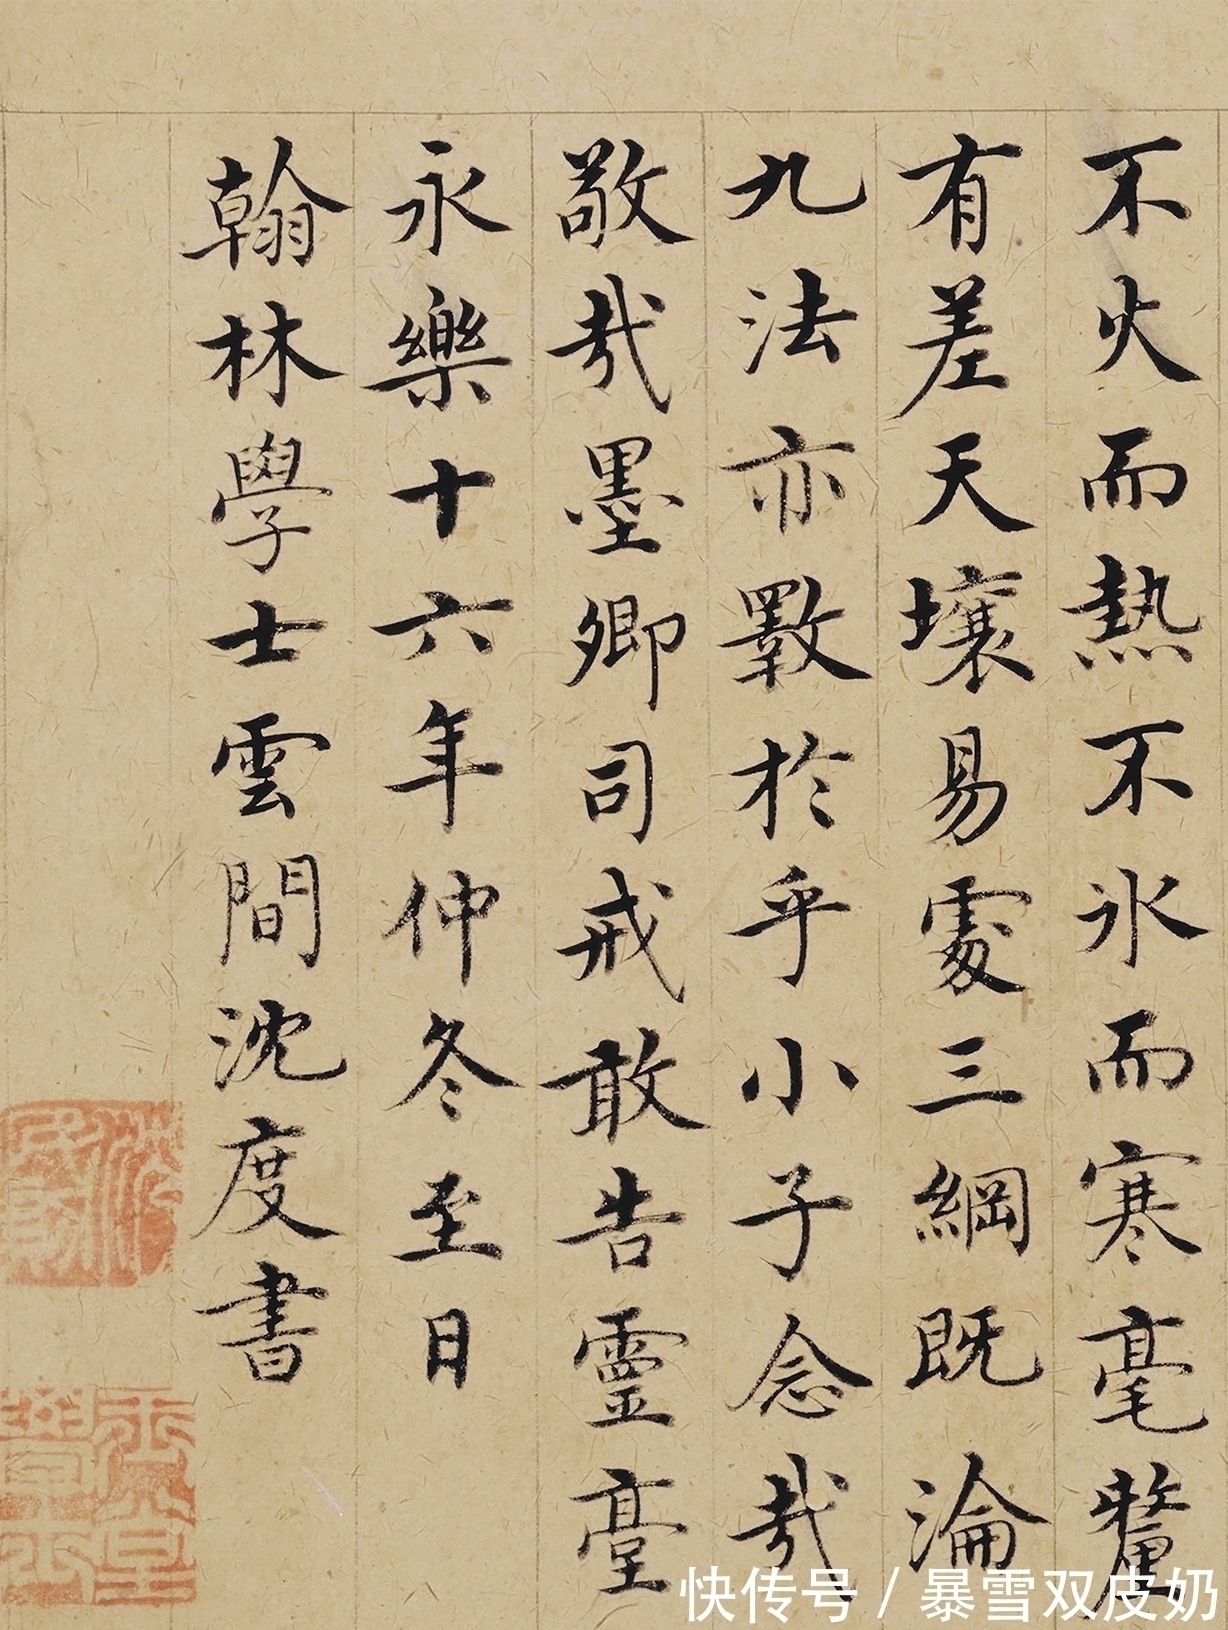 不火而熱不氷而寒毫釐
有差天壤易處三綱既淪
九法亦斁於乎小子念哉
敬哉墨卿司戒敢告靈臺
永樂十六年仲冬至日
翰林學士雲間沈度書
快传号/暴雪双皮奶